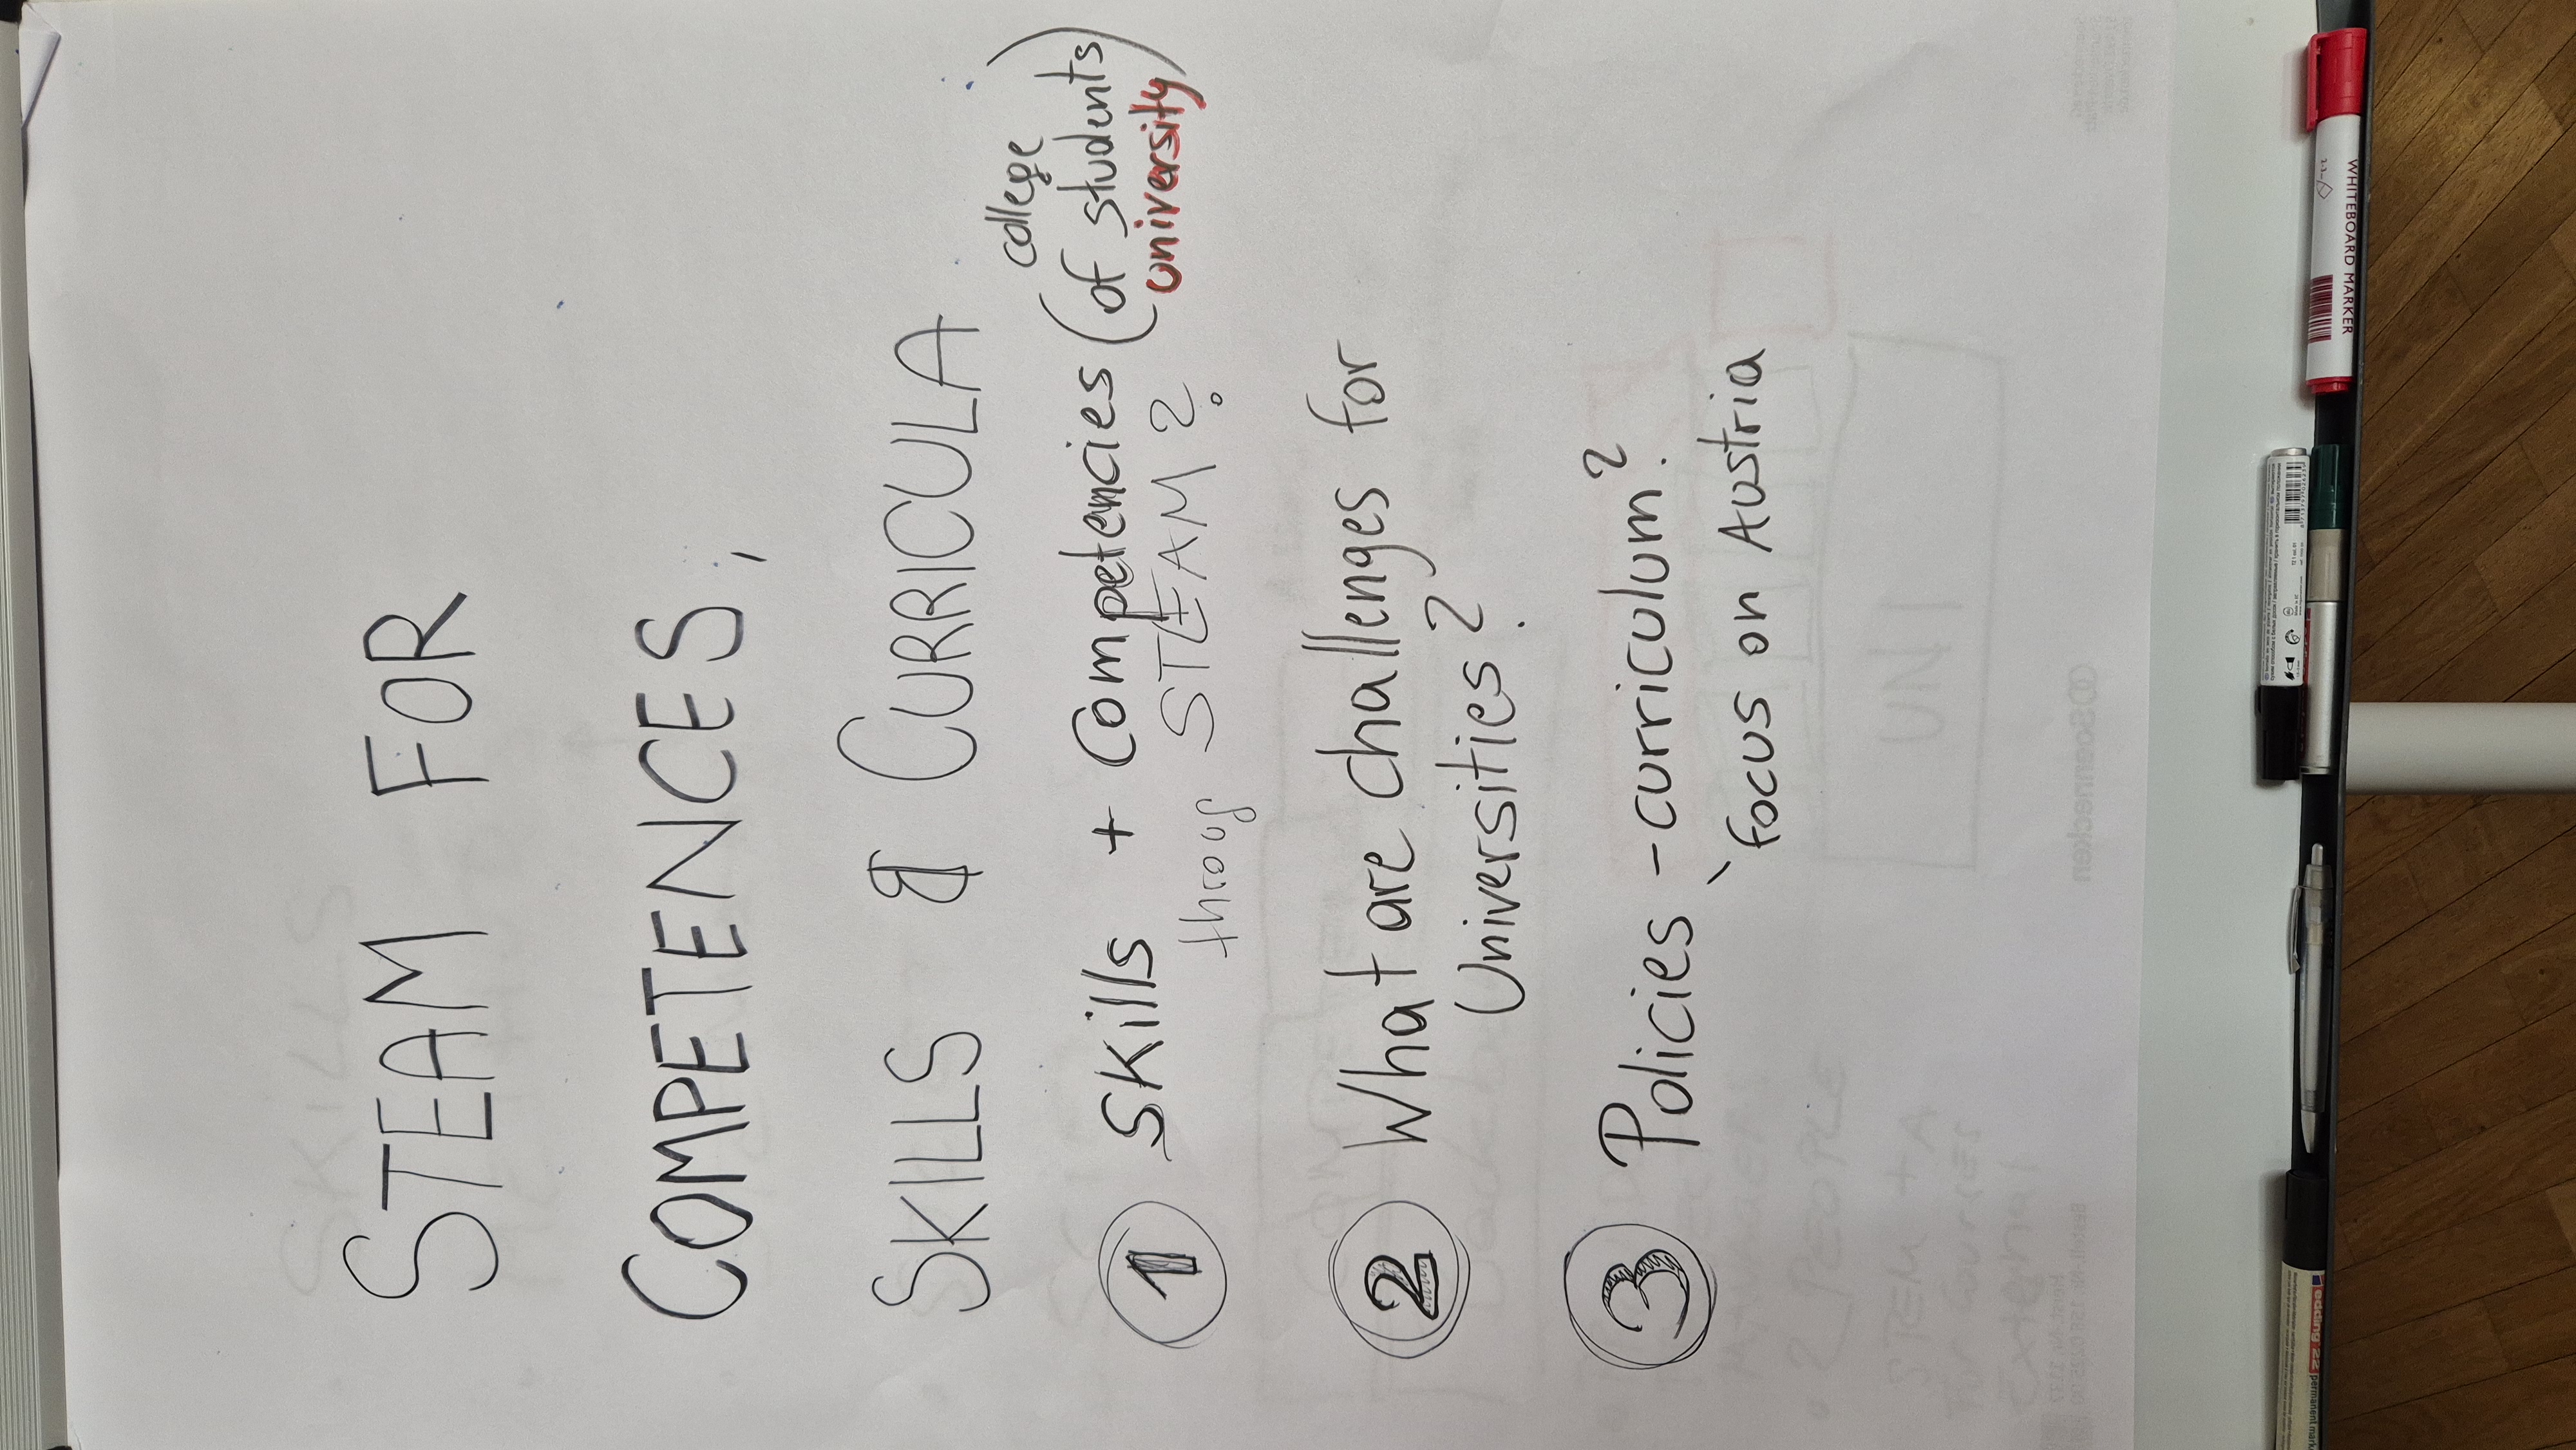 STEAM FOR
COMPETENCES,
SKILLS & CURRICULA
college
① Skills + Competencies (of students)
university
STEAM ?
② What are challenges for
Universities?
③ Policies - curriculum?
focus on Austria
WHITEBOARD MARKER
edding 22
UNI